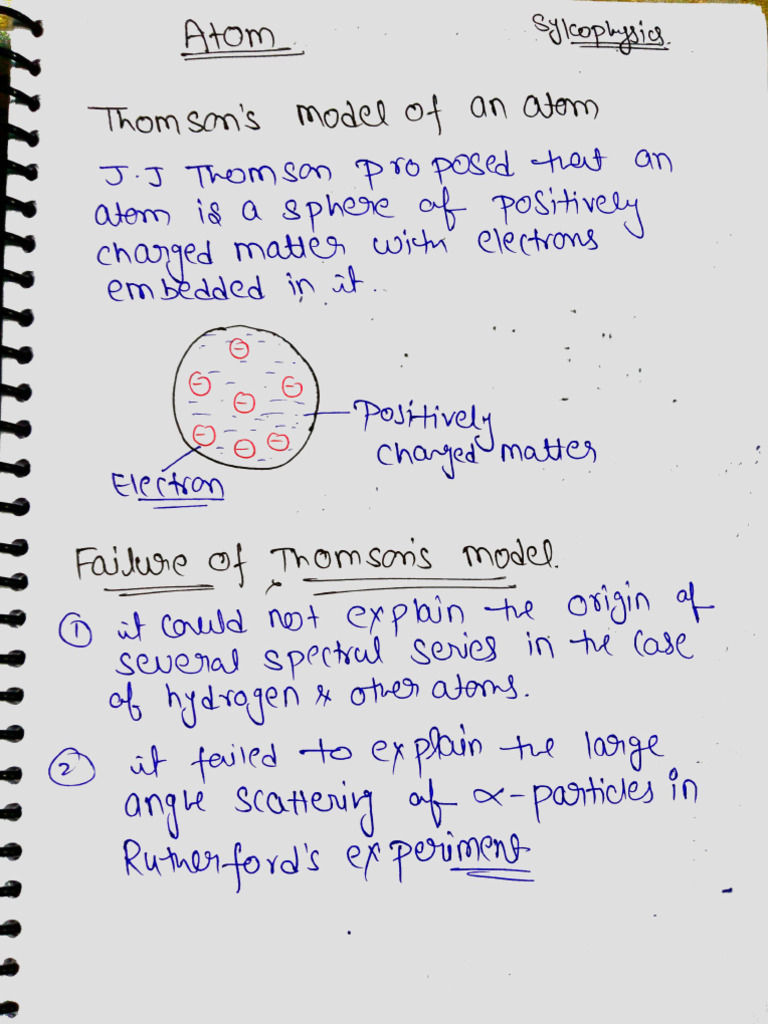 Atom
Sylcophysics.
Thomson's model of an atom
J.J Thomson proposed that an
atom is a sphere of positively
charged matter with electrons
embedded in it..
Positively
charged matter
Electron
Failure of Thomson's model.
① it could not explain the origin of
several spectral series in the case
of hydrogen & other atoms.
② it failed to explain the large
angle scattering of α-particles in
Rutherford's experiment